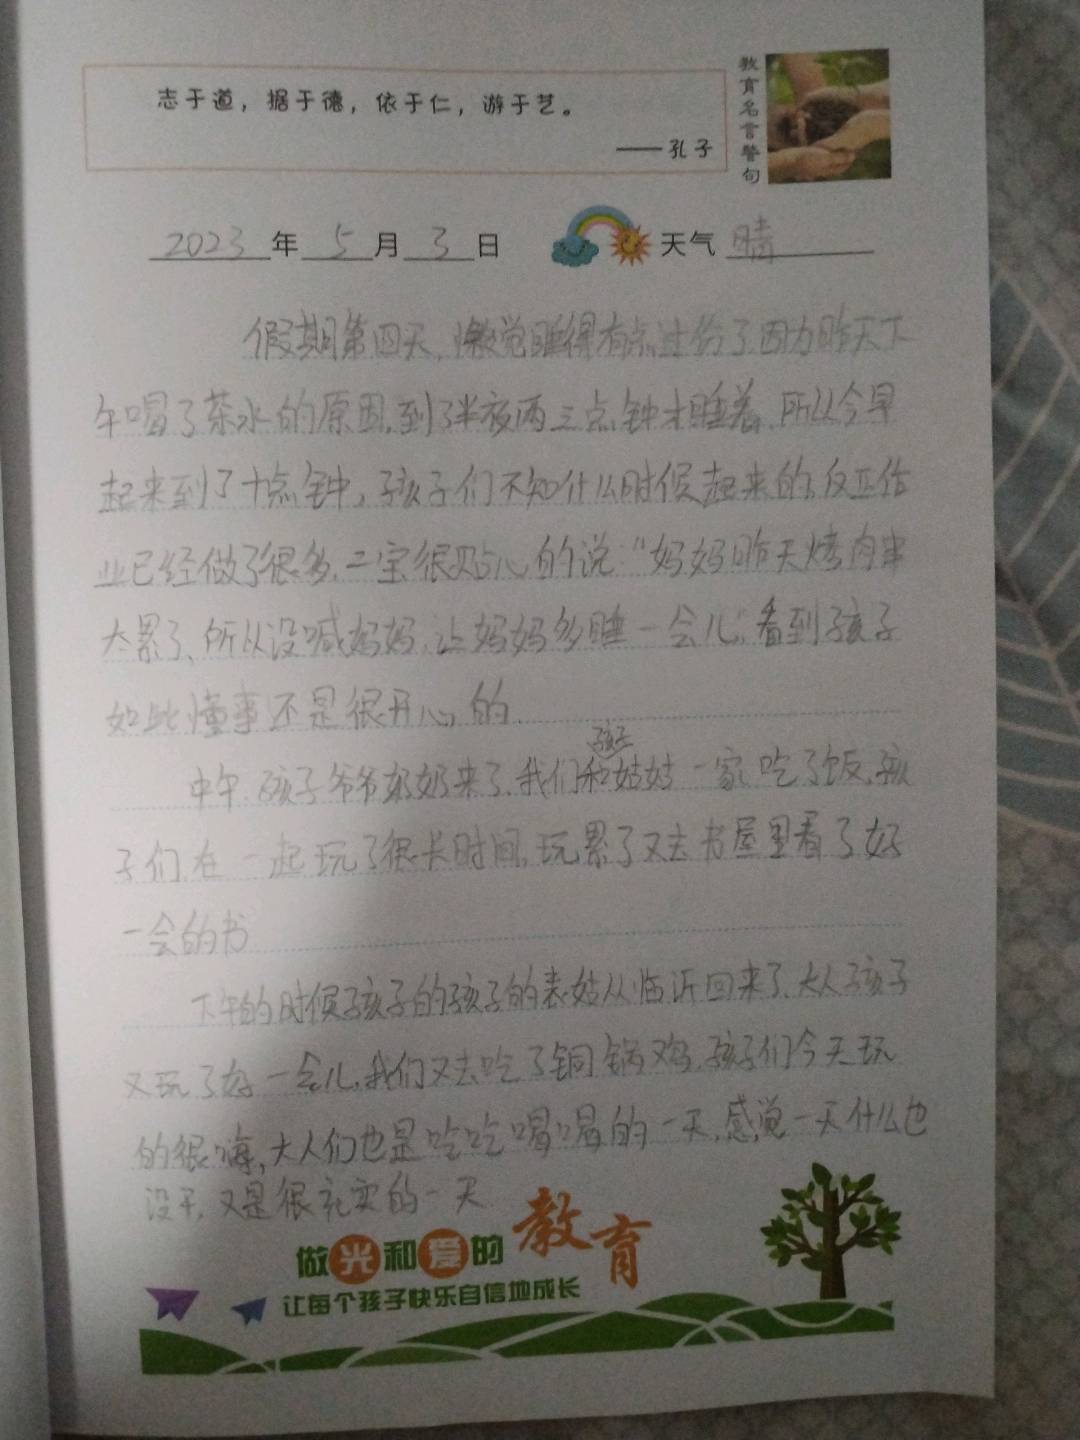 志于道，据于德，依于仁，游于艺。
——孔子
教育名言警句
2023年5月3日 天气 晴
假期第四天，懒觉睡得有点过份了因为昨天下
午喝了茶水的原因，到了半夜两三点钟才睡着，所以今早
起来到了十点钟，孩子们不知什么时候起来的，反正作
业已经做了很多，二宝很贴心的说："妈妈昨天烤肉串
太累了，所以没喊妈妈，让妈妈多睡一会儿"，看到孩子
如此懂事还是很开心的。
中午，孩子爷爷奶奶来了，我们和孩子姑姑一家吃了饭，孩
子们在一起玩了很长时间，玩累了又去书屋里看了好
一会的书
下午的时候孩子的孩子的表姑从临沂回来了，大人孩子
又玩了好一会儿，我们又去吃了铜锅鸡，孩子们今天玩
的很嗨，大人们也是吃吃喝喝的一天，感觉一天什么也
没干，又是很充实的一天
做光和爱的教育
让每个孩子快乐自信地成长